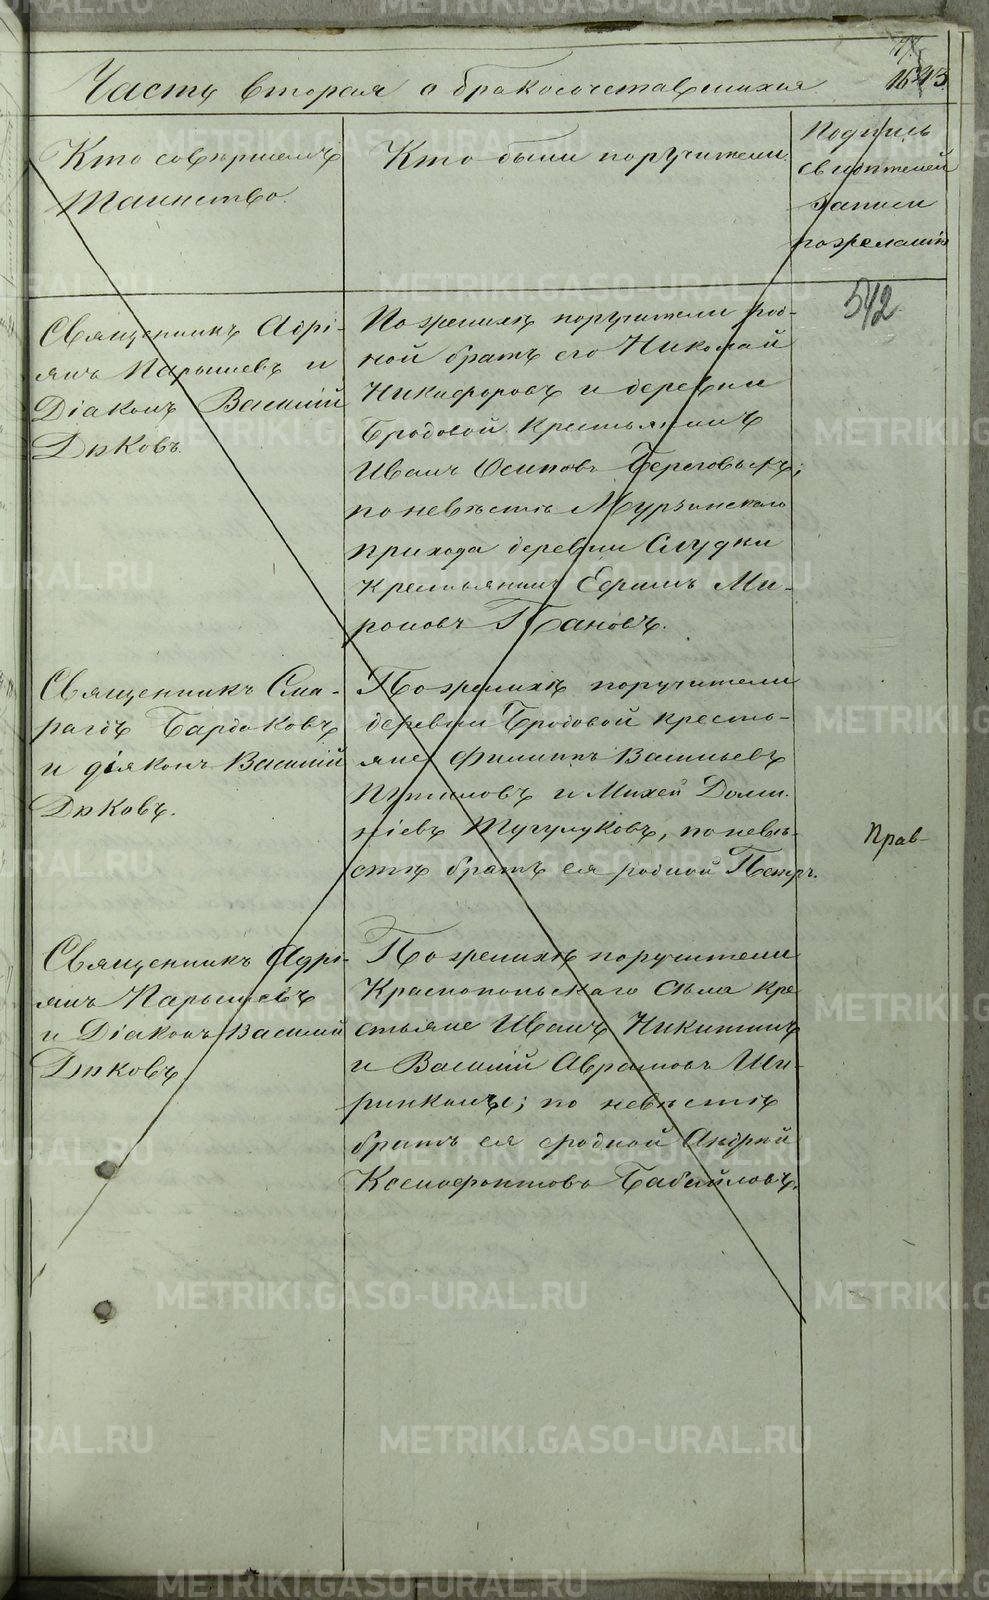 Часть вторая о бракосочетавшихся
Кто совершалъ
таинство.
Кто были поручители.
Подпись
свидѣтелей
записи
по желанію
542
Священникъ Адрі-
янъ Парышевъ и
Діаконъ Василій
Дьковъ.
По женихѣ поручители род-
ной братъ его Николай
Никифоровъ и деревни
Бродовой крестьянинъ
Иванъ Осиповъ Береговыхъ;
по невѣстѣ Мурзинскаго
прихода деревни Слудки
крестьянинъ Ефимъ Ми-
роновъ Пановъ.
Священникъ Сма-
рагдъ Бардаковъ
и діяконъ Василій
Дьковъ.
По женихѣ поручители
деревни Бродовой кресть-
яне Филиппъ Васильевъ
и Михей Домни-
ніевъ Тугулуковъ, по невѣ-
стѣ братъ ея родной Петръ.
Прав
Священникъ Адрі-
янъ Парышевъ
и Діаконъ Василій
Дьковъ
По женихѣ поручители
Краснопольскаго села кре
стьяне Иванъ Никитинъ
и Василій Аврамовъ Ши-
ринкины; по невѣстѣ
братъ ея родной Андрей
Ксенофонтовъ Бабайловъ.
METRIKI.GASO-URAL.RU